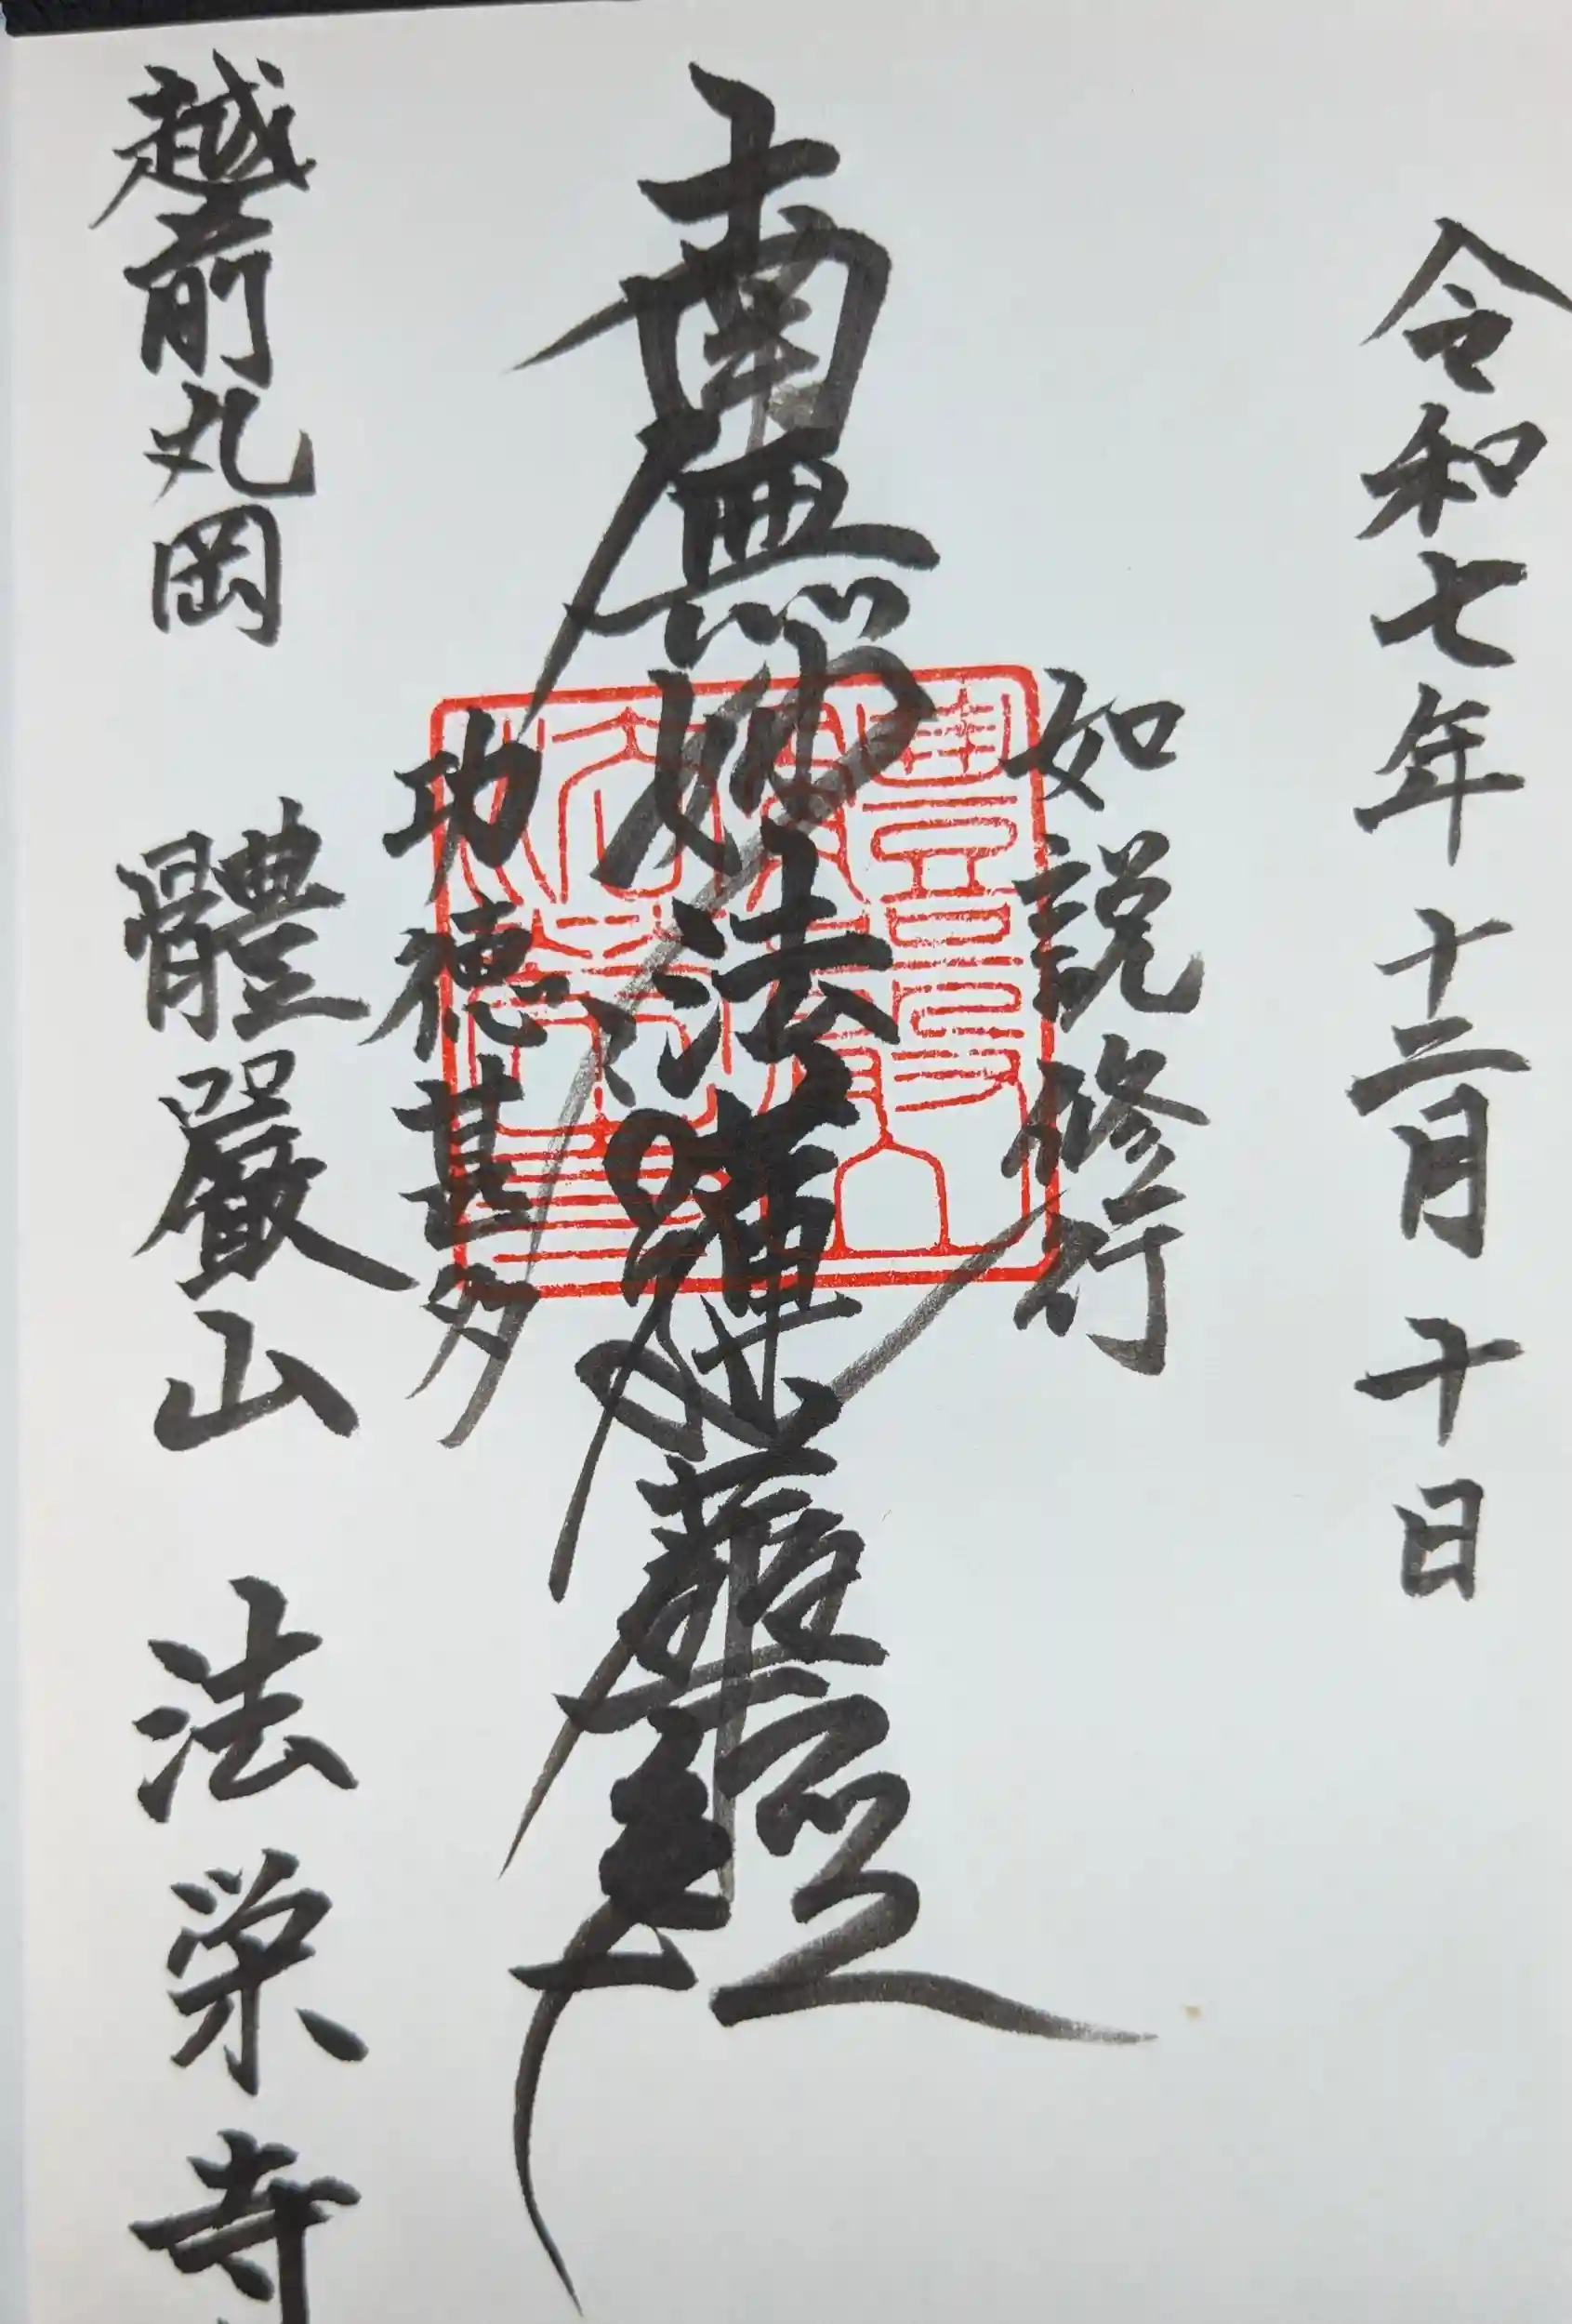 令和七年 十二月 十日
如説修行
南無妙法蓮華経
功徳甚多
越前丸岡 體嚴山 法栄寺